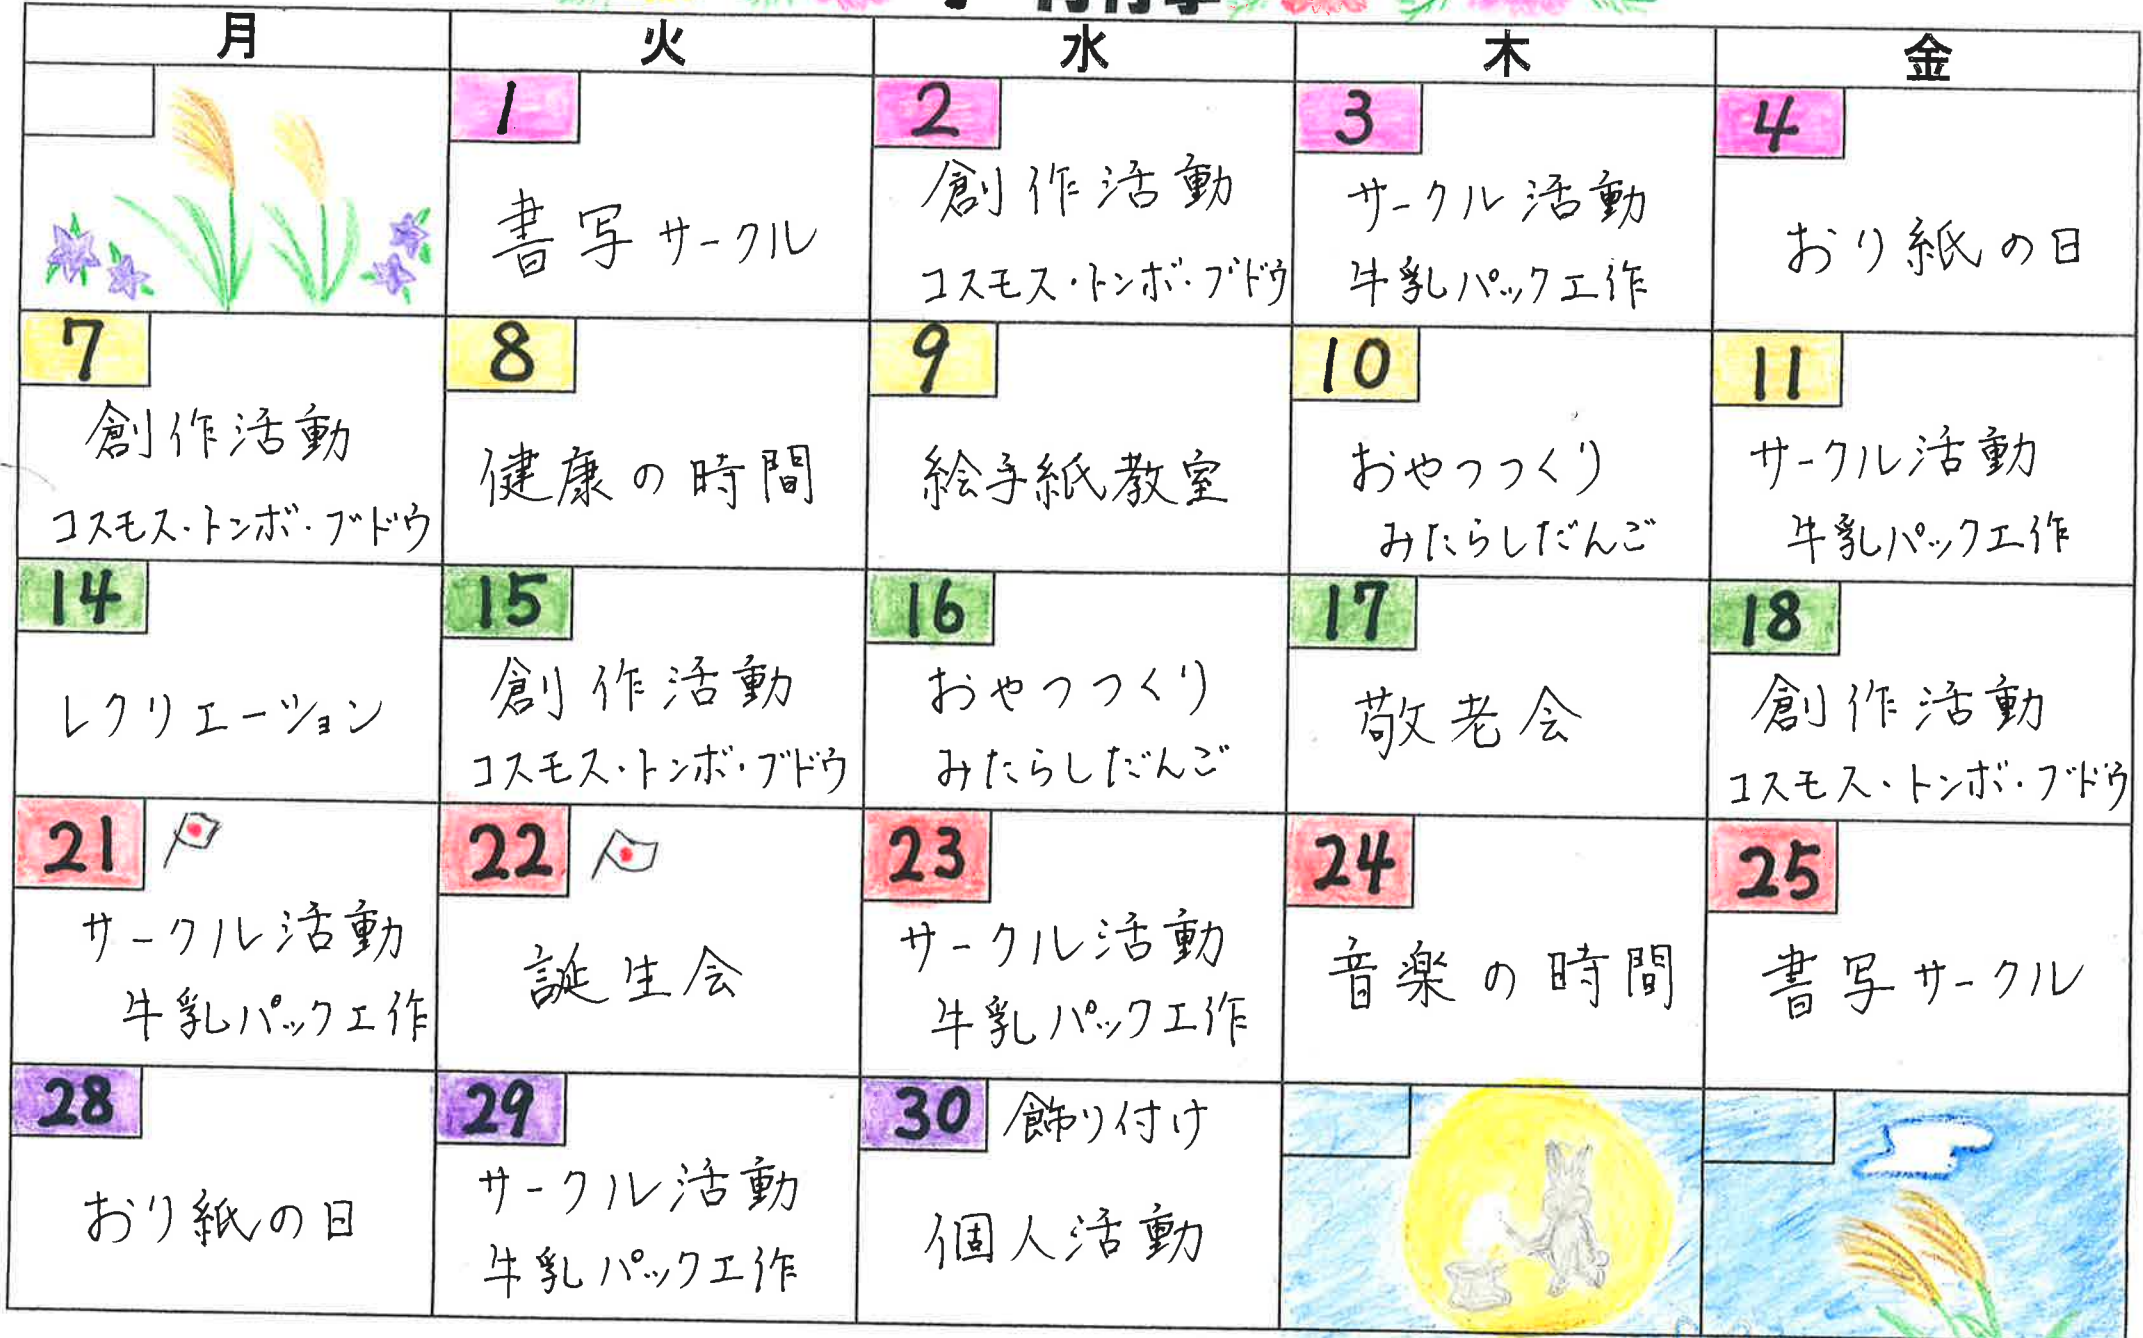 月行事
月 火 水 木 金
1
書写サークル
2
創作活動
コスモス・トンボ・ブドウ
3
サークル活動
牛乳パック工作
4
おり紙の日
7
創作活動
コスモス・トンボ・ブドウ
8
健康の時間
9
絵手紙教室
10
おやつつくり
みたらしだんご
11
サークル活動
牛乳パック工作
14
レクリエーション
15
創作活動
コスモス・トンボ・ブドウ
16
おやつつくり
みたらしだんご
17
敬老会
18
創作活動
コスモス・トンボ・ブドウ
21
サークル活動
牛乳パック工作
22
誕生会
23
サークル活動
牛乳パック工作
24
音楽の時間
25
書写サークル
28
おり紙の日
29
サークル活動
牛乳パック工作
30 飾り付け
個人活動